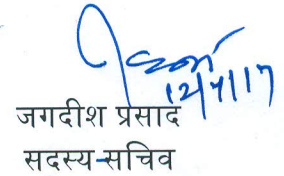 12/7/17
जगदीश प्रसाद
सदस्य-सचिव